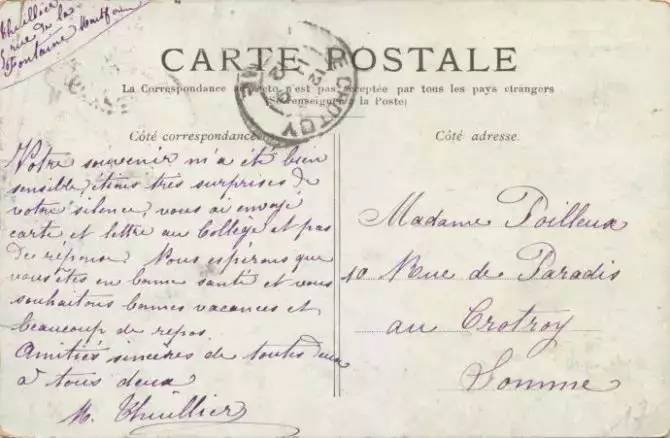 Thuillier
rue de la
Fontaine Montfort
CARTE POSTALE
La Correspondance au recto n'est pas acceptée par tous les pays étrangers
(Se renseigner à la Poste)
LE CROTOY
Côté correspondance
Côté adresse.
Votre souvenir m'a été bien
sensible, étions très surprises de
votre silence, vous ai envoyé
carte et lettre au Collège et pas
de réponse. Nous espérons que
vous êtes en bonne santé et vous
souhaitons bonnes vacances et
beaucoup de repos.
Amitiés sincères de toutes deux
à tous deux
M. Thuillier
Madame Poilleux
10 Rue de Paradis
au Crotroy
Somme